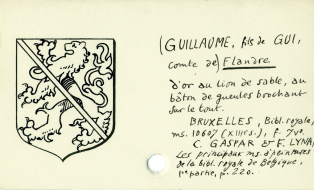 (GUILLAUME, fils de GUI,
comte de) Flandre
d'or au lion de sable, au
bâton de gueules brochant
sur le tout.
BRUXELLES, Bibl. royale,
ms. 10607 (XIIIe s.), f. 7vo.
C. GASPAR et F. LYNA,
Les principaux ms. à peintures
de la bibl. royale de Belgique,
1e partie, p. 220.